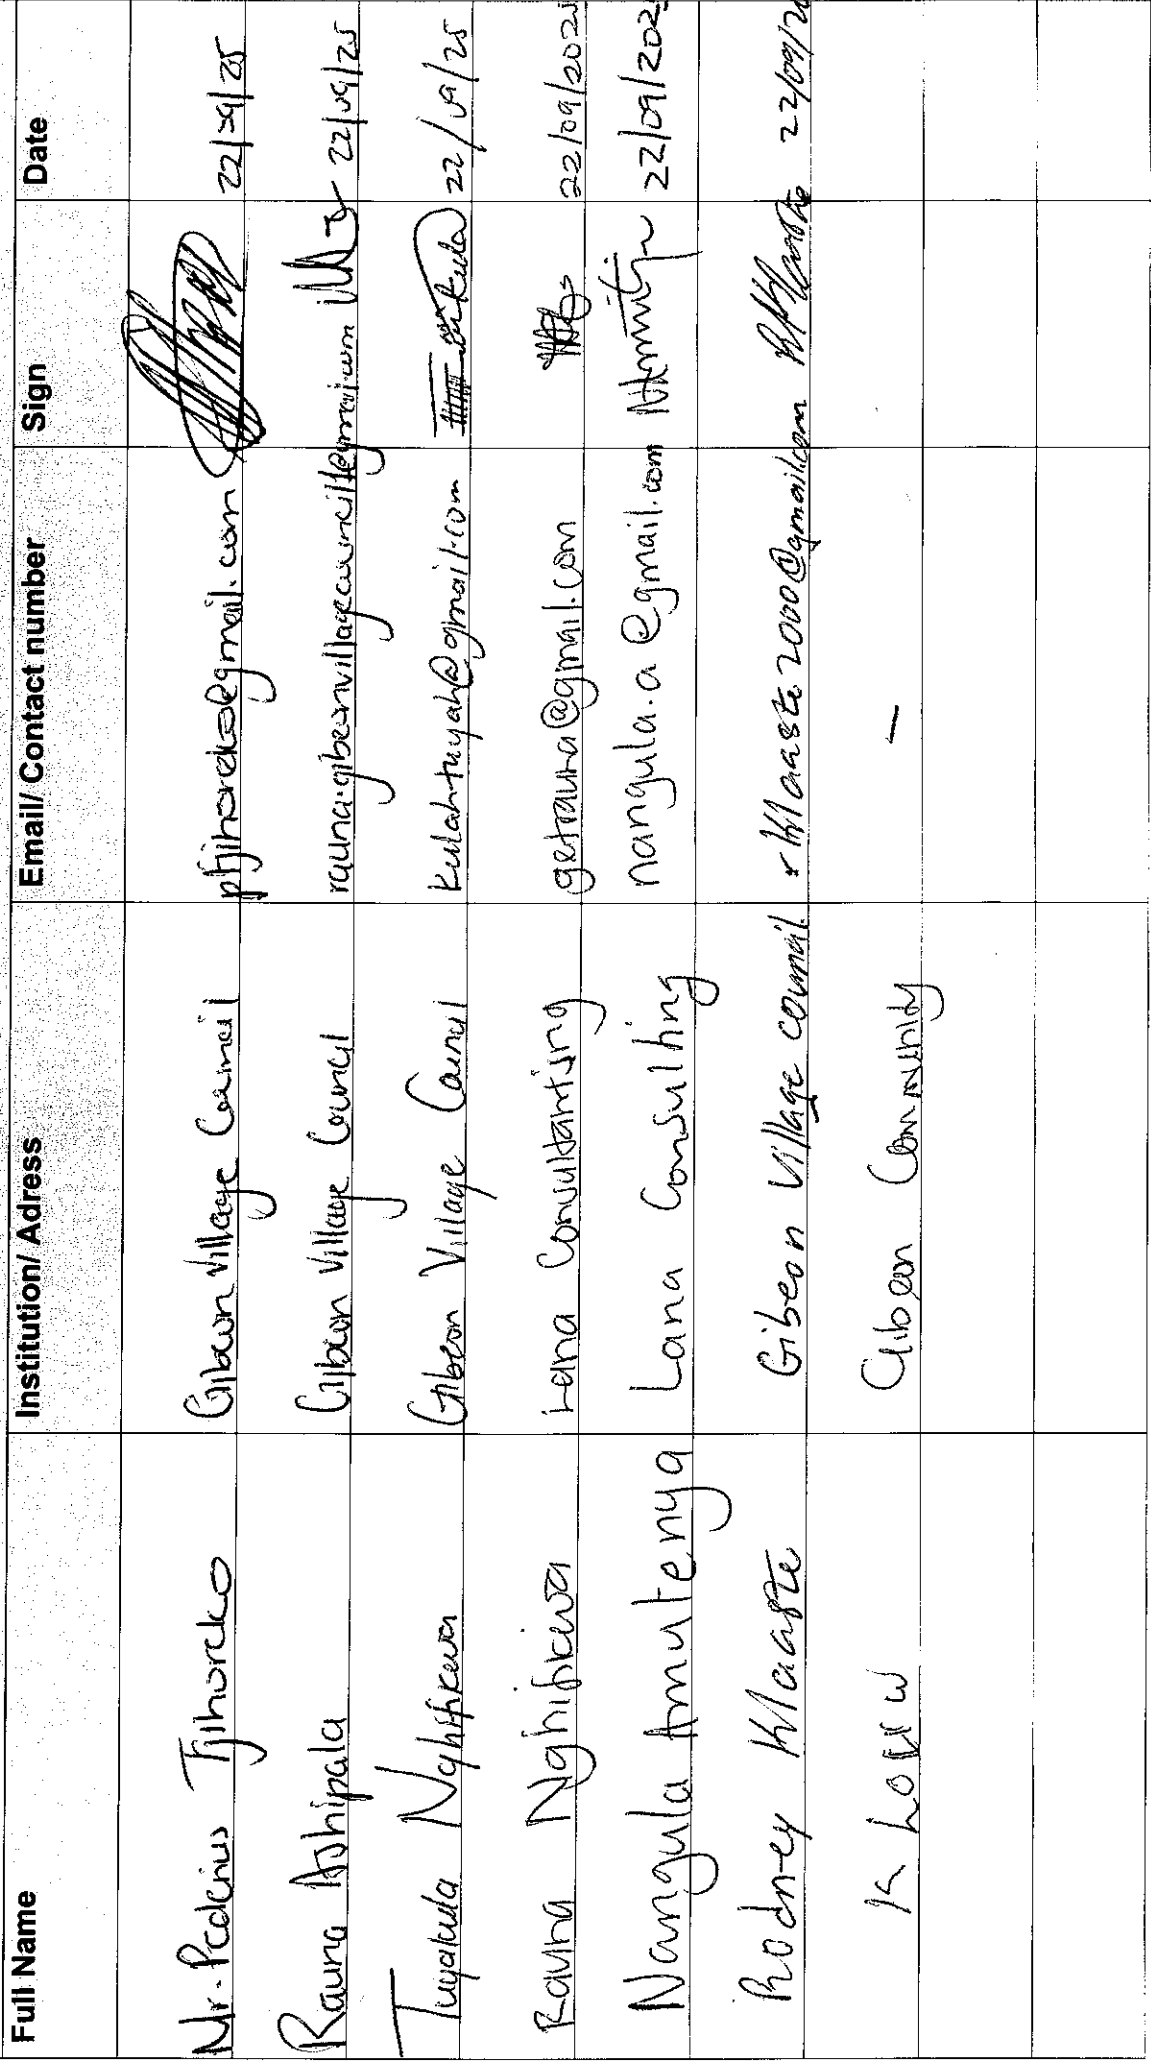 Full Name Institution/ Adress Email/ Contact number Sign Date
Mr. Frederius Tjihoreko Gibeon Village Council ptjihoreko@gmail.com 22/09/25
Rauna Ashipala Gibeon Village Council rauna.gibeonvillagecouncil@gmail.com 22/09/25
Tuyakula Nghifikewa Gibeon Village Council kulahtuyah@gmail.com 22/09/25
Rauna Nghifikwa Lana Consultanting getrauna@gmail.com 22/09/202
Nangula Amutenya Lana Consulting nangula.a@gmail.com 22/09/202
Rodney Klaaste Gibeon Village council rklaaste2000@gmail.com 22/09/20
K Losper Gibeon Community –